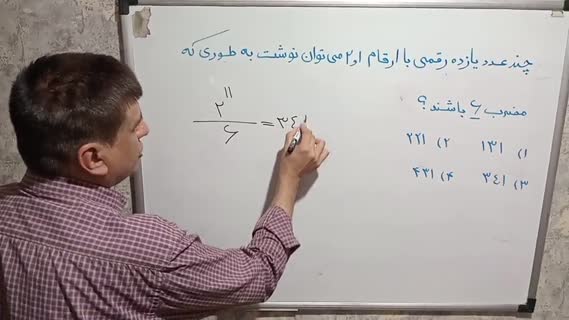 چند عدد یازده رقمی با ارقام ۱ و ۲ می توان نوشت به طوری که
مضرب ۶ باشند ؟
۱) ۱۳۱ ۲) ۲۲۱
۳) ۳۴۱ ۴) ۴۳۱
۲^۱۱ / ۶ = ۳۴۱